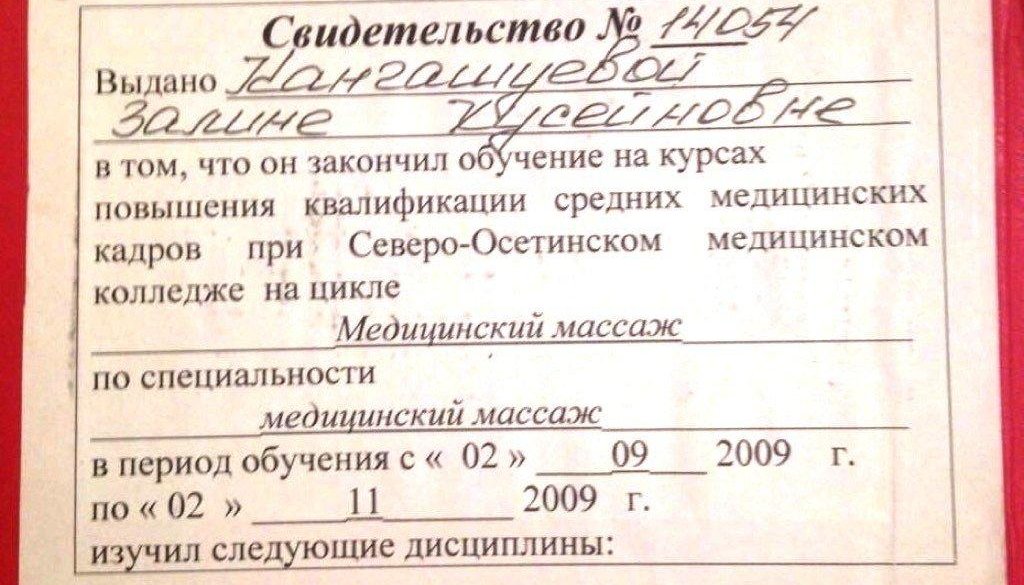 Свидетельство № 14054
Выдано Кангашуевой
Залине Хусейновне
в том, что он закончил обучение на курсах
повышения квалификации средних медицинских
кадров при Северо-Осетинском медицинском
колледже на цикле
Медицинский массаж
по специальности
медицинский массаж
в период обучения с « 02 » 09 2009 г.
по « 02 » 11 2009 г.
изучил следующие дисциплины: